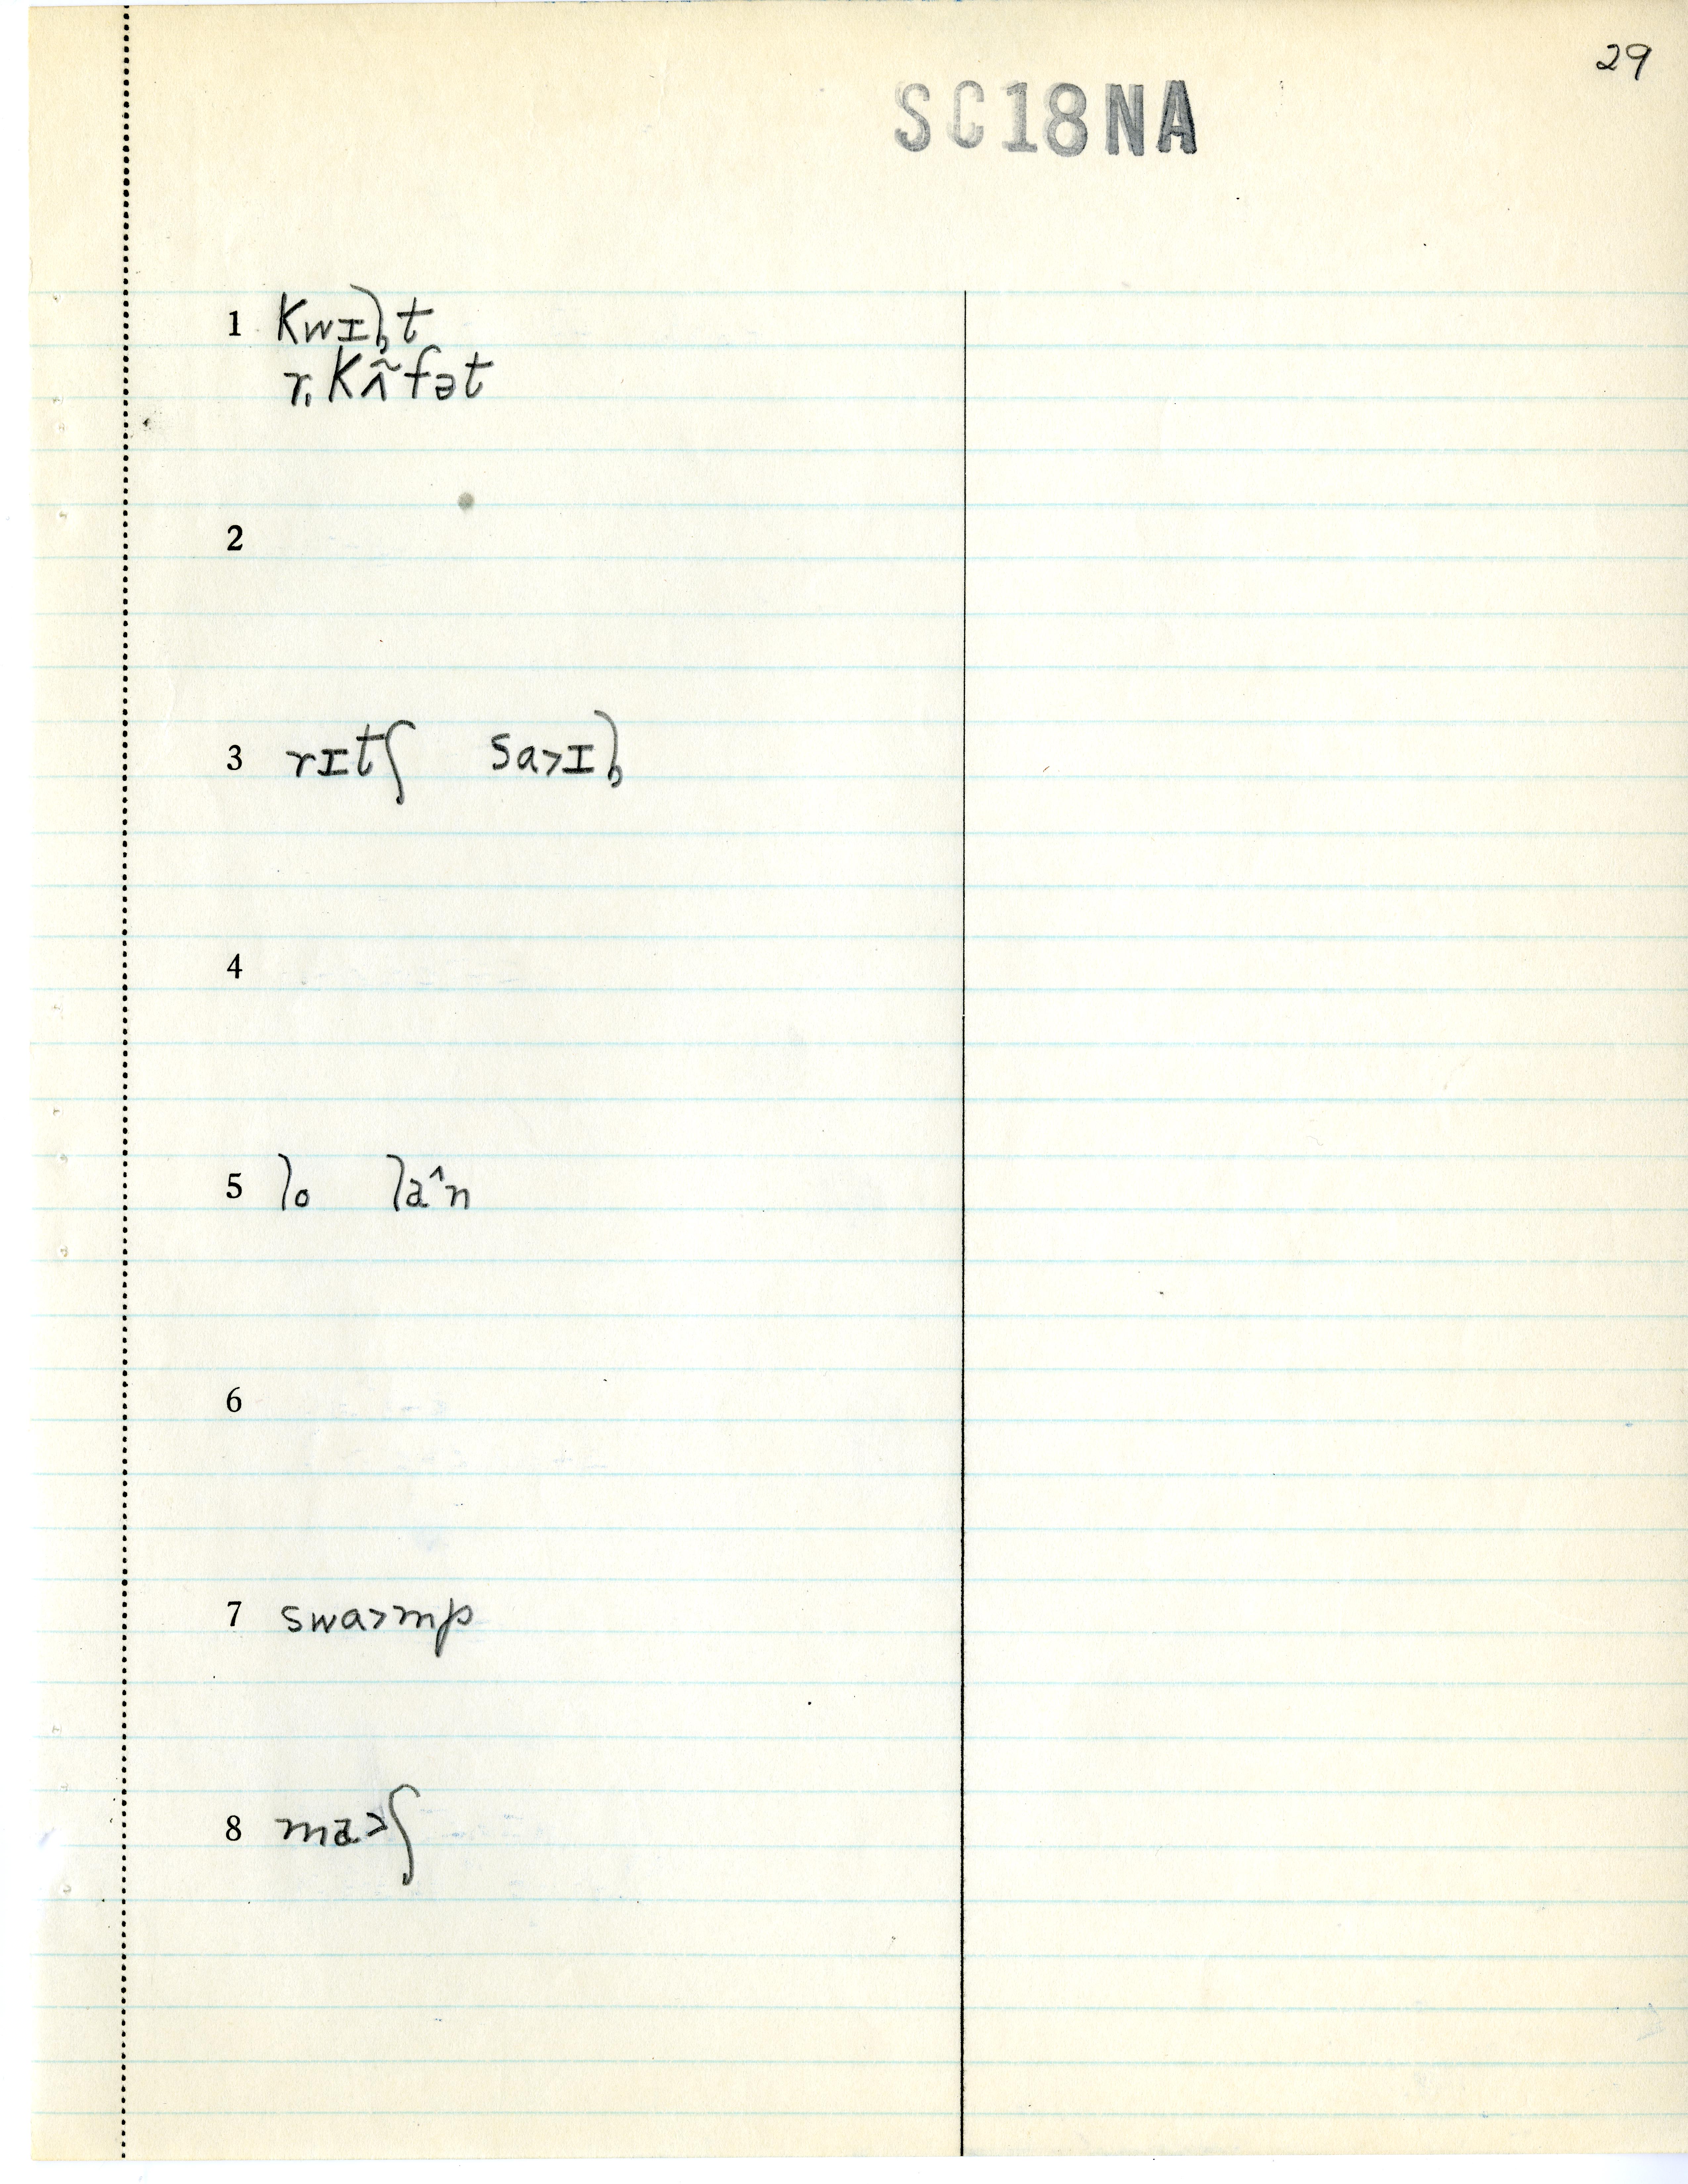 29
SC18NA
1 kwɪɫt
r. kʌ̃fət
2
3 rɪtʃ sa>ɪɫ
4
5 lo la^n
6
7 swa>mp
8 ma>ʃ